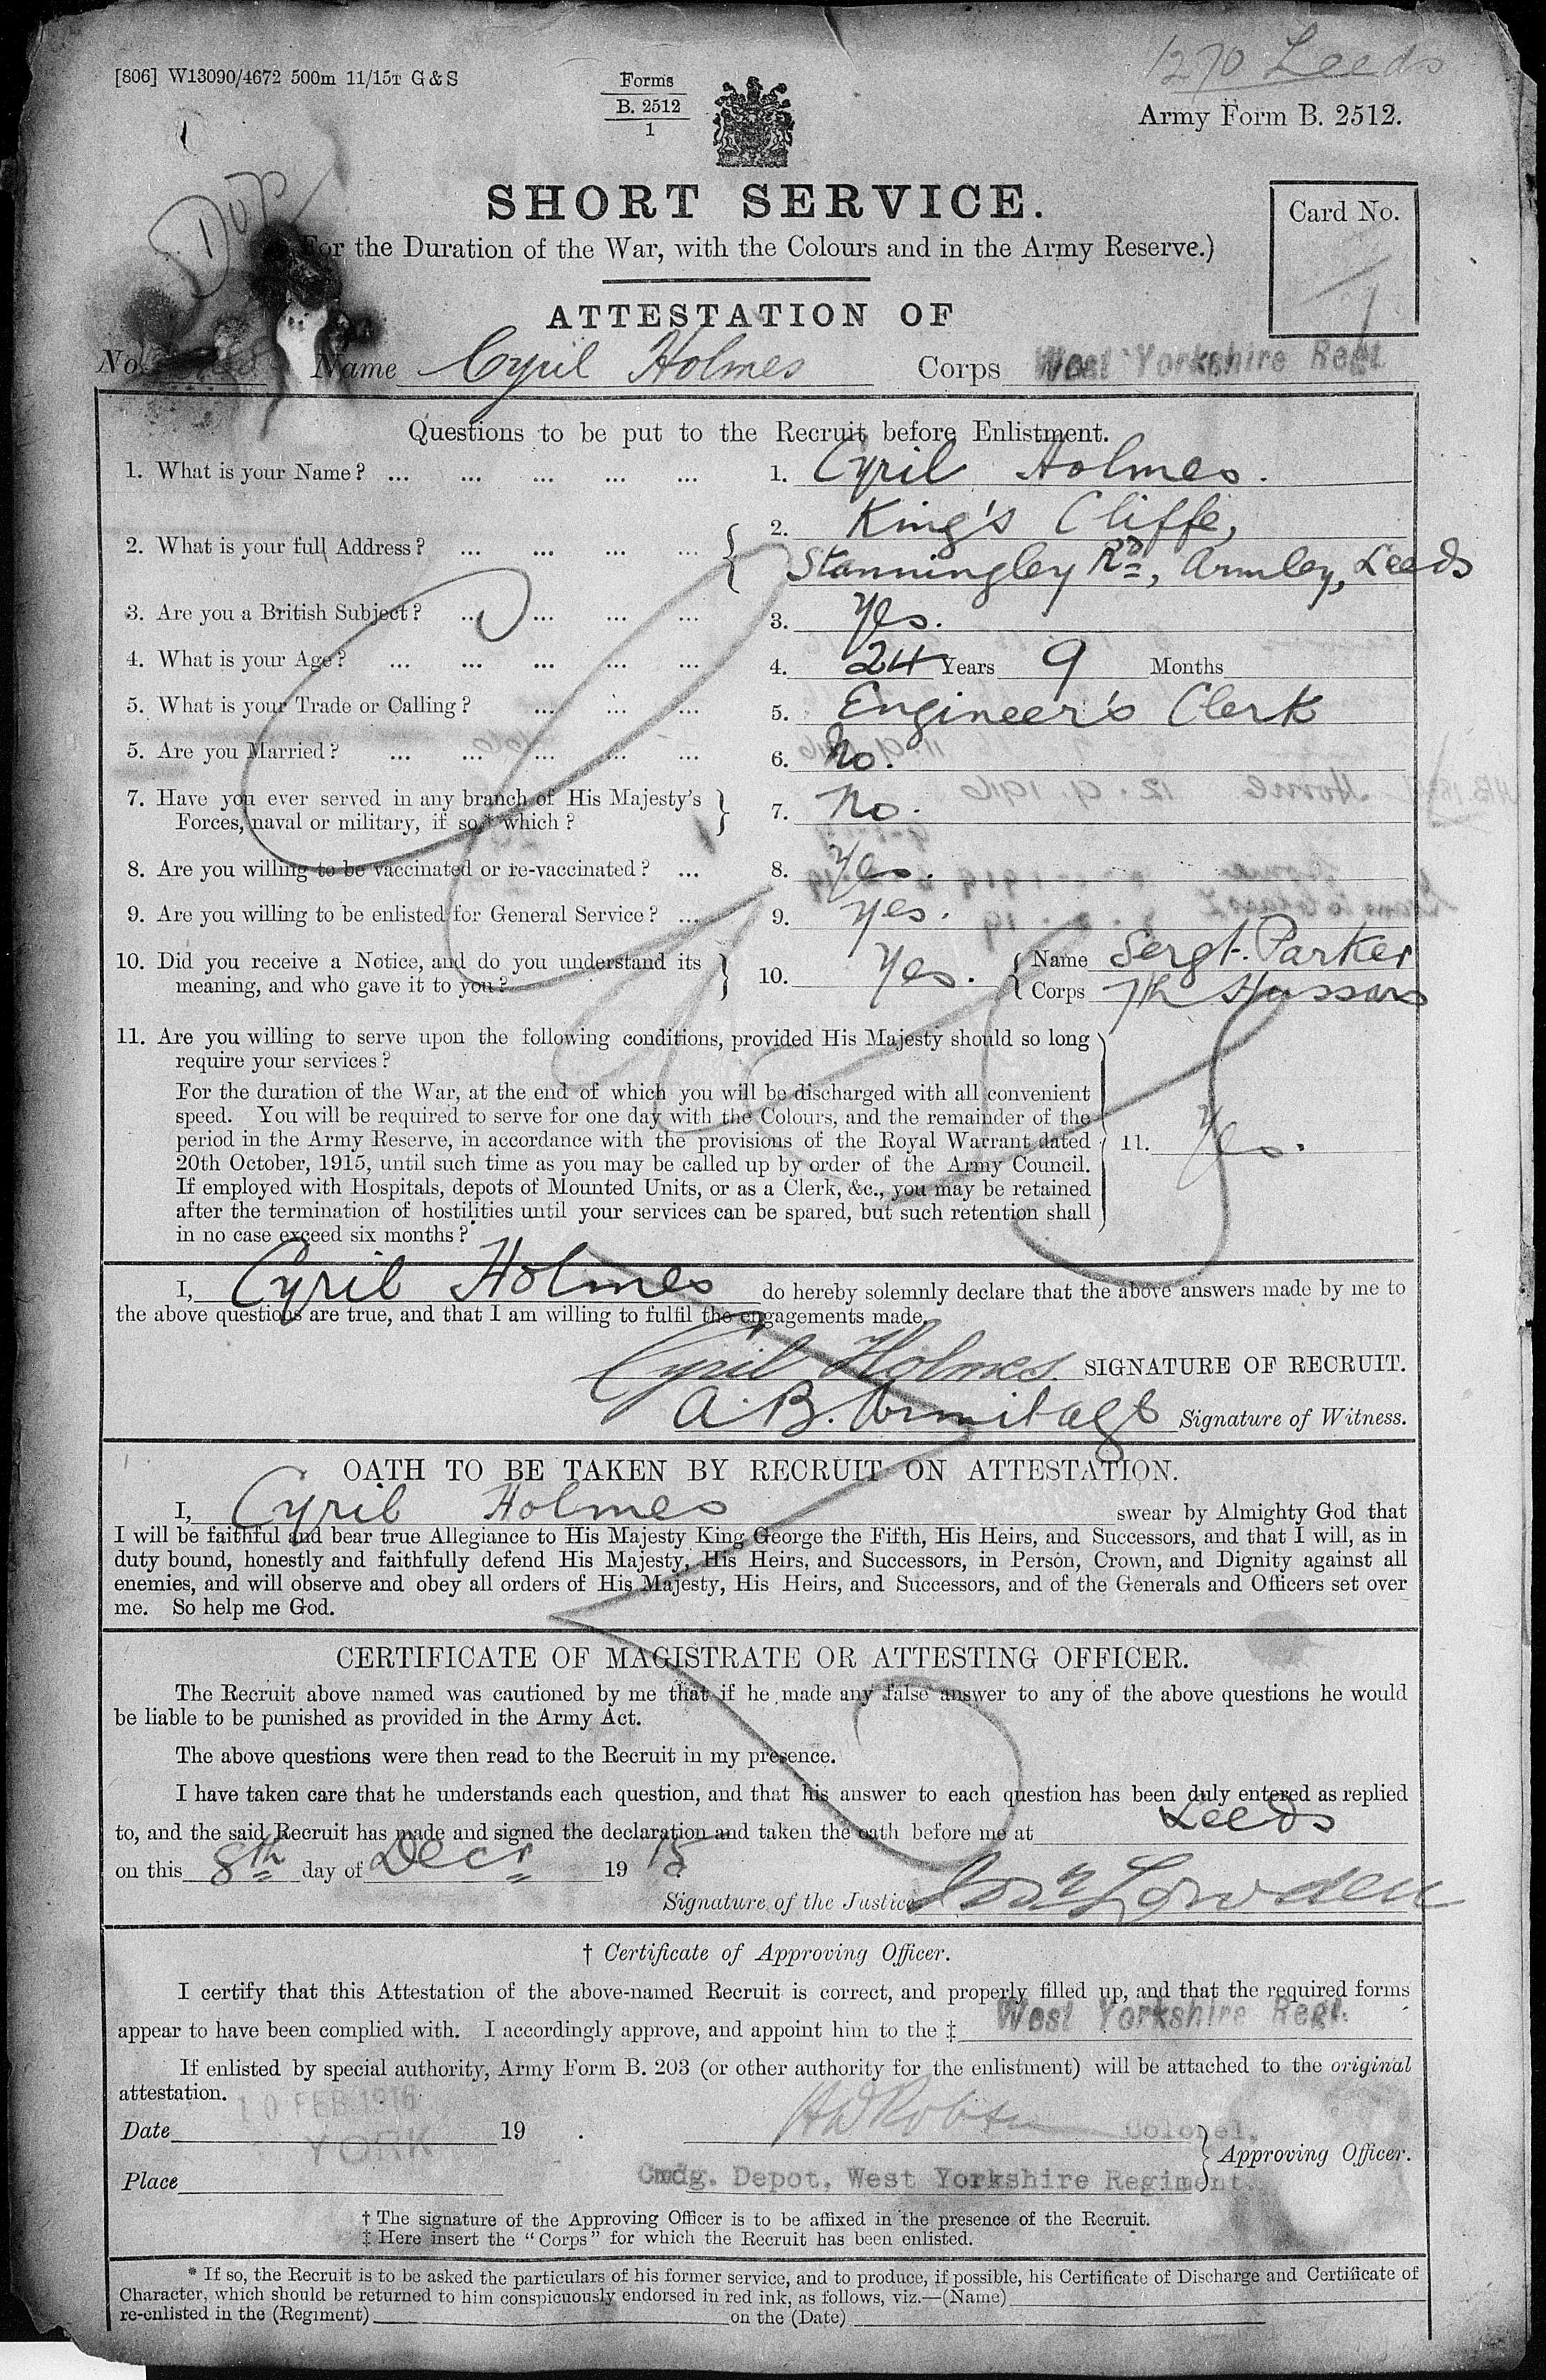 1270 Leeds
[806] W13090/4672 500m 11/15T G & S
Forms
B. 2512
1
Army Form B. 2512.
SHORT SERVICE.
(For the Duration of the War, with the Colours and in the Army Reserve.)
Card No.
1
ATTESTATION OF
No. Name Cyril Holmes Corps West Yorkshire Regt.
Questions to be put to the Recruit before Enlistment.
1. What is your Name? ... ... ... ... ... 1. Cyril Holmes.
2. What is your full Address? ... ... ... ... 2. King's Cliffe,
Stanningley Rd, Armley, Leeds
3. Are you a British Subject? ... ... ... ... 3. Yes.
4. What is your Age? ... ... ... ... ... 4. 24 Years 9 Months
5. What is your Trade or Calling? ... ... ... 5. Engineer's Clerk
5. Are you Married? ... ... ... ... ... 6. No.
7. Have you ever served in any branch of His Majesty's
Forces, naval or military, if so,* which? 7. No.
8. Are you willing to be vaccinated or re-vaccinated? ... 8. Yes.
9. Are you willing to be enlisted for General Service? ... 9. Yes.
10. Did you receive a Notice, and do you understand its
meaning, and who gave it to you? 10. Yes. Name Sergt. Parker
Corps 7th Hussars
11. Are you willing to serve upon the following conditions, provided His Majesty should so long
require your services?
For the duration of the War, at the end of which you will be discharged with all convenient
speed. You will be required to serve for one day with the Colours, and the remainder of the
period in the Army Reserve, in accordance with the provisions of the Royal Warrant dated
20th October, 1915, until such time as you may be called up by order of the Army Council.
If employed with Hospitals, depots of Mounted Units, or as a Clerk, &c., you may be retained
after the termination of hostilities until your services can be spared, but such retention shall
in no case exceed six months?
11. Yes.
I, Cyril Holmes do hereby solemnly declare that the above answers made by me to
the above questions are true, and that I am willing to fulfil the engagements made.
Cyril Holmes. SIGNATURE OF RECRUIT.
A. B. Armitage Signature of Witness.
OATH TO BE TAKEN BY RECRUIT ON ATTESTATION.
I, Cyril Holmes swear by Almighty God that
I will be faithful and bear true Allegiance to His Majesty King George the Fifth, His Heirs, and Successors, and that I will, as in
duty bound, honestly and faithfully defend His Majesty, His Heirs, and Successors, in Person, Crown, and Dignity against all
enemies, and will observe and obey all orders of His Majesty, His Heirs, and Successors, and of the Generals and Officers set over
me. So help me God.
CERTIFICATE OF MAGISTRATE OR ATTESTING OFFICER.
The Recruit above named was cautioned by me that if he made any false answer to any of the above questions he would
be liable to be punished as provided in the Army Act.
The above questions were then read to the Recruit in my presence.
I have taken care that he understands each question, and that his answer to each question has been duly entered as replied
to, and the said Recruit has made and signed the declaration and taken the oath before me at Leeds
on this 8th day of Decr 1915
Signature of the Justice Lowden
† Certificate of Approving Officer.
I certify that this Attestation of the above-named Recruit is correct, and properly filled up, and that the required forms
appear to have been complied with. I accordingly approve, and appoint him to the ‡ West Yorkshire Regt.
If enlisted by special authority, Army Form B. 203 (or other authority for the enlistment) will be attached to the original
attestation.
10 FEB 1916
Date 19 . Colonel,
YORK
Approving Officer.
Place Cmdg. Depot, West Yorkshire Regiment.
† The signature of the Approving Officer is to be affixed in the presence of the Recruit.
‡ Here insert the "Corps" for which the Recruit has been enlisted.
* If so, the Recruit is to be asked the particulars of his former service, and to produce, if possible, his Certificate of Discharge and Certificate of
Character, which should be returned to him conspicuously endorsed in red ink, as follows, viz.—(Name)
re-enlisted in the (Regiment) on the (Date)